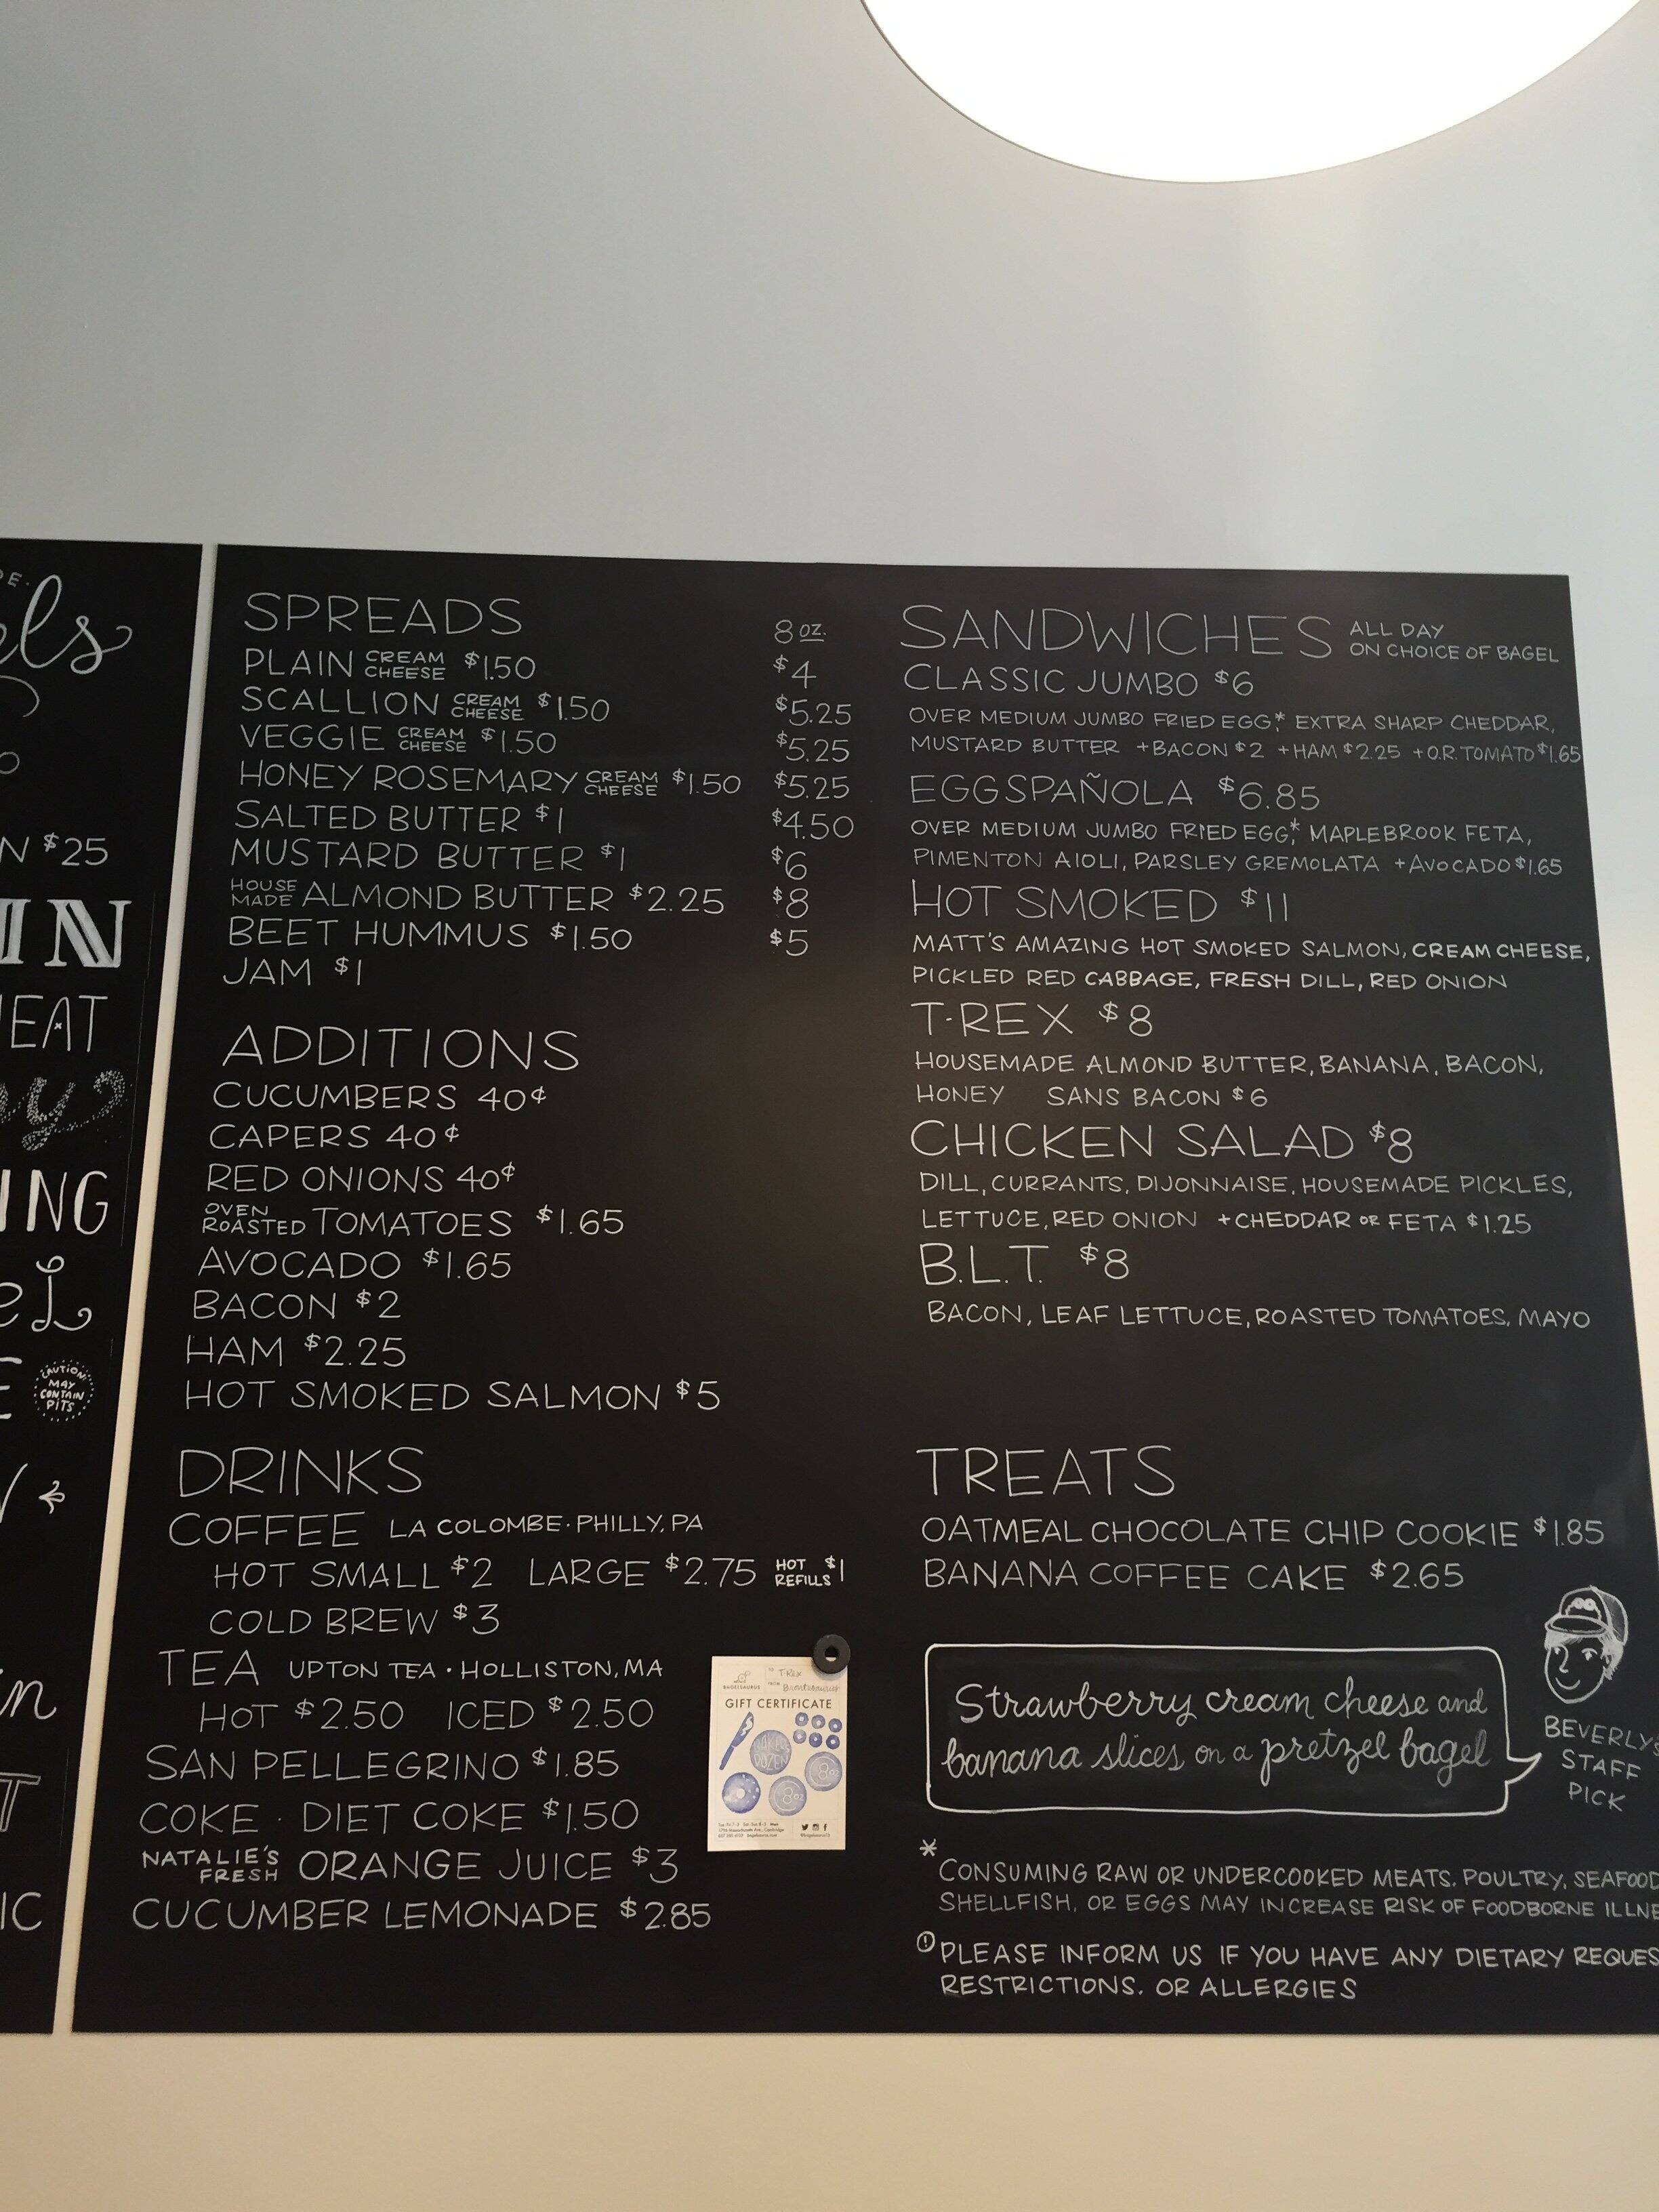 N $25
IN
EAT
ING
CAUTION:
MAY
CONTAIN
PITS
SPREADS 8 OZ.
PLAIN CREAM CHEESE $1.50 $4
SCALLION CREAM CHEESE $1.50 $5.25
VEGGIE CREAM CHEESE $1.50 $5.25
HONEY ROSEMARY CREAM CHEESE $1.50 $5.25
SALTED BUTTER $1 $4.50
MUSTARD BUTTER $1 $6
HOUSE MADE ALMOND BUTTER $2.25 $8
BEET HUMMUS $1.50 $5
JAM $1
ADDITIONS
CUCUMBERS 40¢
CAPERS 40¢
RED ONIONS 40¢
OVEN ROASTED TOMATOES $1.65
AVOCADO $1.65
BACON $2
HAM $2.25
HOT SMOKED SALMON $5
DRINKS
COFFEE LA COLOMBE · PHILLY, PA
HOT SMALL $2 LARGE $2.75 HOT REFILLS $1
COLD BREW $3
TEA UPTON TEA · HOLLISTON, MA
HOT $2.50 ICED $2.50
SAN PELLEGRINO $1.85
COKE · DIET COKE $1.50
NATALIE'S FRESH ORANGE JUICE $3
CUCUMBER LEMONADE $2.85
BAGELSAURUS
TO T-Rex
FROM
GIFT CERTIFICATE
BAKER'S
DOZEN
8 oz
8 oz
SANDWICHES ALL DAY ON CHOICE OF BAGEL
CLASSIC JUMBO $6
OVER MEDIUM JUMBO FRIED EGG,* EXTRA SHARP CHEDDAR,
MUSTARD BUTTER +BACON $2 +HAM $2.25 +O.R. TOMATO $1.65
EGGSPAÑOLA $6.85
OVER MEDIUM JUMBO FRIED EGG,* MAPLEBROOK FETA,
PIMENTON AIOLI, PARSLEY GREMOLATA +AVOCADO $1.65
HOT SMOKED $11
MATT'S AMAZING HOT SMOKED SALMON, CREAM CHEESE,
PICKLED RED CABBAGE, FRESH DILL, RED ONION
T-REX $8
HOUSEMADE ALMOND BUTTER, BANANA, BACON,
HONEY SANS BACON $6
CHICKEN SALAD $8
DILL, CURRANTS, DIJONNAISE, HOUSEMADE PICKLES,
LETTUCE, RED ONION +CHEDDAR OR FETA $1.25
B.L.T. $8
BACON, LEAF LETTUCE, ROASTED TOMATOES, MAYO
TREATS
OATMEAL CHOCOLATE CHIP COOKIE $1.85
BANANA COFFEE CAKE $2.65
Strawberry cream cheese and
banana slices on a pretzel bagel
BEVERLY'S
STAFF
PICK
* CONSUMING RAW OR UNDERCOOKED MEATS, POULTRY, SEAFOOD
SHELLFISH, OR EGGS MAY INCREASE RISK OF FOODBORNE ILLNE
! PLEASE INFORM US IF YOU HAVE ANY DIETARY REQUES
RESTRICTIONS, OR ALLERGIES